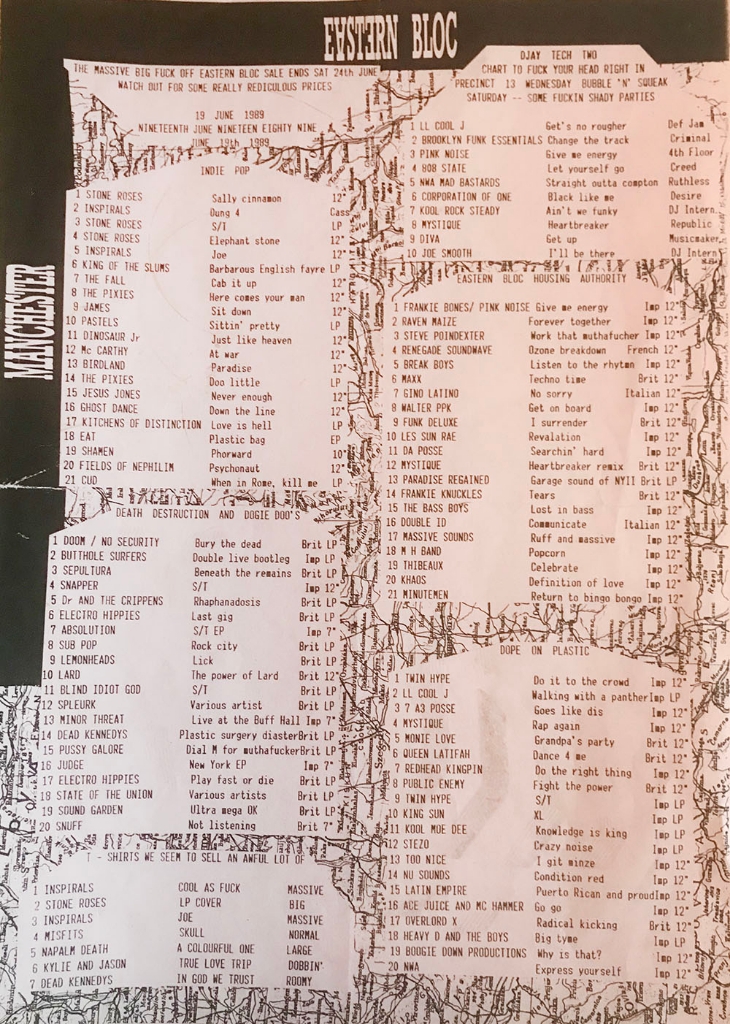 EASTERN BLOC
MANCHESTER
THE MASSIVE BIG FUCK OFF EASTERN BLOC SALE ENDS SAT 24th JUNE
WATCH OUT FOR SOME REALLY REDICULOUS PRICES
19 JUNE 1989
NINETEENTH JUNE NINETEEN EIGHTY NINE
JUNE 19th 1989
INDIE POP
1 STONE ROSES Sally cinnamon 12"
2 INSPIRALS Dung 4 Cass
3 STONE ROSES S/T LP
4 STONE ROSES Elephant stone 12"
5 INSPIRALS Joe 12"
6 KING OF THE SLUMS Barbarous English fayre LP
7 THE FALL Cab it up 12"
8 THE PIXIES Here comes your man 12"
9 JAMES Sit down 12"
10 PASTELS Sittin' pretty LP
11 DINOSAUR Jr Just like heaven 12"
12 Mc CARTHY At war 12"
13 BIRDLAND Paradise 12"
14 THE PIXIES Doo little LP
15 JESUS JONES Never enough 12"
16 GHOST DANCE Down the line 12"
17 KITCHENS OF DISTINCTION Love is hell LP
18 EAT Plastic bag EP
19 SHAMEN Phorward 10"
20 FIELDS OF NEPHILIM Psychonaut 12"
21 CUD When in Rome, kill me LP
DEATH DESTRUCTION AND DOGIE DOO'S
1 DOOM / NO SECURITY Bury the dead Brit LP
2 BUTTHOLE SURFERS Double live bootleg Imp LP
3 SEPULTURA Beneath the remains Brit LP
4 SNAPPER S/T Imp LP
5 Dr AND THE CRIPPENS Rhaphanadosis Brit LP
6 ELECTRO HIPPIES Last gig Brit LP
7 ABSOLUTION S/T EP Imp 7"
8 SUB POP Rock city Brit LP
9 LEMONHEADS Lick Brit LP
10 LARD The power of Lard Brit 12"
11 BLIND IDIOT GOD S/T Brit LP
12 SPLEURK Various artist Brit LP
13 MINOR THREAT Live at the Buff Hall Imp 7"
14 DEAD KENNEDYS Plastic surgery diasterBrit LP
15 PUSSY GALORE Dial M for muthafuckerBrit LP
16 JUDGE New York EP Imp 7"
17 ELECTRO HIPPIES Play fast or die Brit LP
18 STATE OF THE UNION Various artists Brit LP
19 SOUND GARDEN Ultra mega OK Brit LP
20 SNUFF Not listening Brit 7"
T - SHIRTS WE SEEM TO SELL AN AWFUL LOT OF
1 INSPIRALS COOL AS FUCK MASSIVE
2 STONE ROSES LP COVER BIG
3 INSPIRALS JOE MASSIVE
4 MISFITS SKULL NORMAL
5 NAPALM DEATH A COLOURFUL ONE LARGE
6 KYLIE AND JASON TRUE LOVE TRIP DOBBIN'
7 DEAD KENNEDYS IN GOD WE TRUST ROOMY
DJAY TECH TWO
CHART TO FUCK YOUR HEAD RIGHT IN
PRECINCT 13 WEDNESDAY BUBBLE 'N' SQUEAK
SATURDAY -- SOME FUCKIN SHADY PARTIES
1 LL COOL J Get's no rougher Def Jam
2 BROOKLYN FUNK ESSENTIALS Change the track Criminal
3 PINK NOISE Give me energy 4th Floor
4 808 STATE Let yourself go Creed
5 NWA MAD BASTARDS Straight outta compton Ruthless
6 CORPORATION OF ONE Black like me Desire
7 KOOL ROCK STEADY Ain't we funky DJ Intern
8 MYSTIQUE Heartbreaker Republic
9 DIVA Get up Musicmaker
10 JOE SMOOTH I'll be there DJ Intern
EASTERN BLOC HOUSING AUTHORITY
1 FRANKIE BONES/ PINK NOISE Give me energy Imp 12"
2 RAVEN MAIZE Forever together Imp 12"
3 STEVE POINDEXTER Work that muthafucher Imp 12"
4 RENEGADE SOUNDWAVE Ozone breakdown French 12"
5 BREAK BOYS Listen to the rhythm Imp 12"
6 MAXX Techno time Brit 12"
7 GINO LATINO No sorry Italian 12"
8 WALTER PPK Get on board Imp 12"
9 FUNK DELUXE I surrender Brit 12"
10 LES SUN RAE Revalation Imp 12"
11 DA POSSE Searchin' hard Imp 12"
12 MYSTIQUE Heartbreaker remix Brit 12"
13 PARADISE REGAINED Garage sound of NYII Brit LP
14 FRANKIE KNUCKLES Tears Brit 12"
15 THE BASS BOYS Lost in bass Imp 12"
16 DOUBLE ID Communicate Italian 12"
17 MASSIVE SOUNDS Ruff and massive Imp 12"
18 M H BAND Popcorn Imp 12"
19 THIBEAUX Celebrate Imp 12"
20 KHAOS Definition of love Imp 12"
21 MINUTEMEN Return to bingo bongo Imp 12"
DOPE ON PLASTIC
1 TWIN HYPE Do it to the crowd Imp 12"
2 LL COOL J Walking with a pantherImp LP
3 7 A3 POSSE Goes like dis Imp 12"
4 MYSTIQUE Rap again Imp 12"
5 MONIE LOVE Grandpa's party Brit 12"
6 QUEEN LATIFAH Dance 4 me Brit 12"
7 REDHEAD KINGPIN Do the right thing Imp 12"
8 PUBLIC ENEMY Fight the power Brit 12"
9 TWIN HYPE S/T Imp LP
10 KING SUN XL Imp LP
11 KOOL MOE DEE Knowledge is king Imp LP
12 STEZO Crazy noise Imp LP
13 TOO NICE I git minze Imp 12"
14 NU SOUNDS Condition red Imp 12"
15 LATIN EMPIRE Puerto Rican and proudImp 12"
16 ACE JUICE AND MC HAMMER Go go Imp 12"
17 OVERLORD X Radical kicking Brit 12"
18 HEAVY D AND THE BOYS Big tyme Imp LP
19 BOOGIE DOWN PRODUCTIONS Why is that? Imp 12"
20 NWA Express yourself Imp 12"